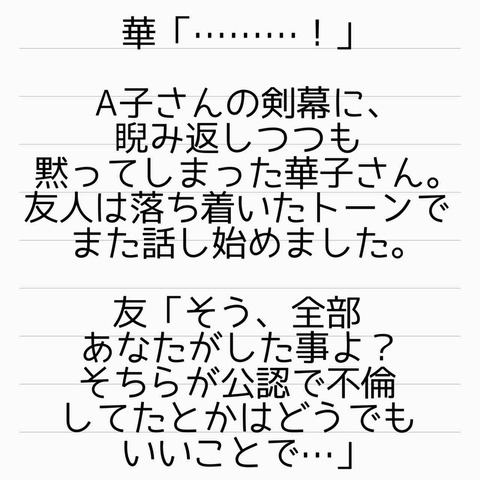 華「………！」
A子さんの剣幕に、
睨み返しつつも
黙ってしまった華子さん。
友人は落ち着いたトーンで
また話し始めました。
友「そう、全部
あなたがした事よ？
そちらが公認で不倫
してたとかはどうでも
いいことで…」